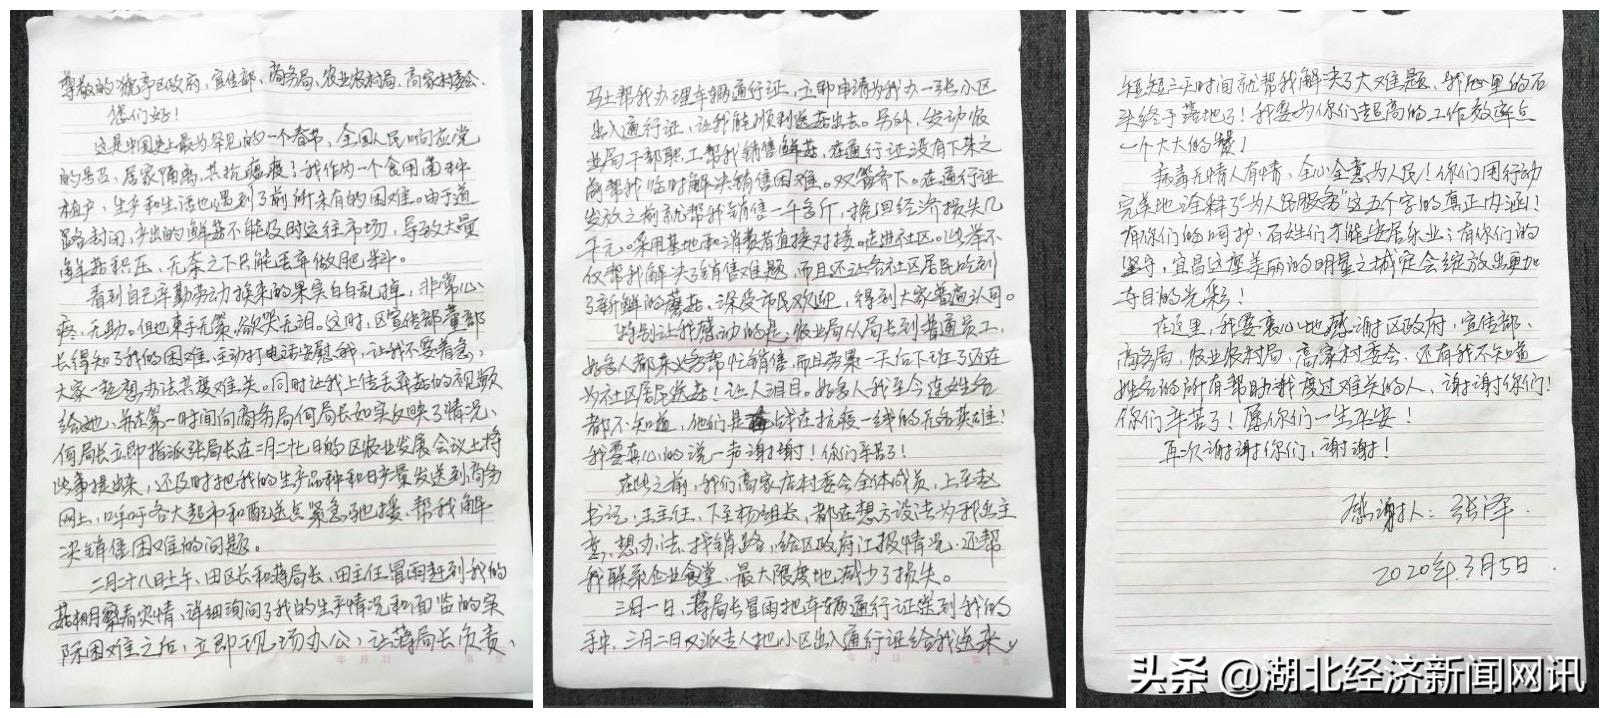 尊敬的猇亭区政府、宣传部、商务局、农业农村局、高家村委会、
您们好!
这是中国史上最为罕见的一个春节,全国人民响应党
的号召,居家隔离,共抗瘟疫!我作为一个食用菌种
植户,生产和生活也遇到了前所未有的困难。由于道
路封闭,产出的鲜菇不能及时送往市场,导致大量
鲜菇积压,无奈之下只能丢弃做肥料。
看到自己辛勤劳动换来的果实白白乱掉,非常心
疼、无助。但也束手无策、欲哭无泪。这时,区宣传部董部
长得知了我的困难,主动打电话安慰我,让我不要着急,
大家一起想办法共度难关。同时让我上传丢弃菇的视频
给她,并在第一时间向商务局何局长如实反映了情况、
何局长立即指派张局长在二月二十七日的区农业发展会议上将
此事提出来,还及时把我的生产品种和日产量发送到商务
网上,呼吁各大超市和配送点紧急驰援、帮我解
决销售困难的问题。
二月二十八日上午、田区长和蒋局长、田主任冒雨赶到我的
菇棚察看灾情,详细询问了我的生产情况和面临的实
际困难之后,立即现场办公,让蒋局长负责、
年 月 日
马上帮我办理车辆通行证,立即申请为我办一张小区
出入通行证,让我能顺利送菇出去。另外,发动农
业局干部职工帮我销售鲜菇,在通行证没有下来之
前帮我临时解决销售困难。双管齐下。在通行证
发放之前就帮我销售一千多斤,挽回经济损失几
千元。采用基地和消费者直接对接。走进社区。此举不
仅帮我解决了销售难题,而且还让各社区居民吃到
了新鲜的蘑菇、深受市民欢迎,得到大家普遍认可。
特别让我感动的是,农业局从局长到普通员工,
好多人都来义务帮忙销售,而且劳累一天后下班了还在
为社区居民送菇!让人泪目。好多人我至今连姓名
都不知道,他们是战在抗疫一线的无名英雄!
我要真心的说一声谢谢!你们辛苦了!
在此之前,我们高家店村委会全体成员,上至赵
书记、王主任、下至杨组长,都在想方设法为我出主
意、想办法、找销路,给区政府汇报情况、还帮
我联系企业食堂、最大限度地减少了损失。
三月一日,蒋局长冒雨把车辆通行证送到我的
手中,三月二日又派专人把小区出入通行证给我送来,
年 月 日
短短三天时间就帮我解决了大难题、我心里的石
头终于落地了!我要为你们超高的工作效率点
一个大大的赞!
病毒无情人有情,全心全意为人民!你们用行动
完美地诠释了"为人民服务"这五个字的真正内涵!
有你们的呵护,百姓们才能安居乐业;有你们的
坚守,宜昌这座美丽的明星之城定会绽放出更加
夺目的光彩!
在这里,我要衷心地感谢区政府,宣传部、
商务局,农业农村局,高家村委会、还有我不知道
姓名的所有帮助我度过难关的人,谢谢你们!
你们辛苦了!愿你们一生平安!
再次谢谢你们,谢谢!
感谢人:张泽.
2020年3月5日.
头条 @湖北经济新闻网讯